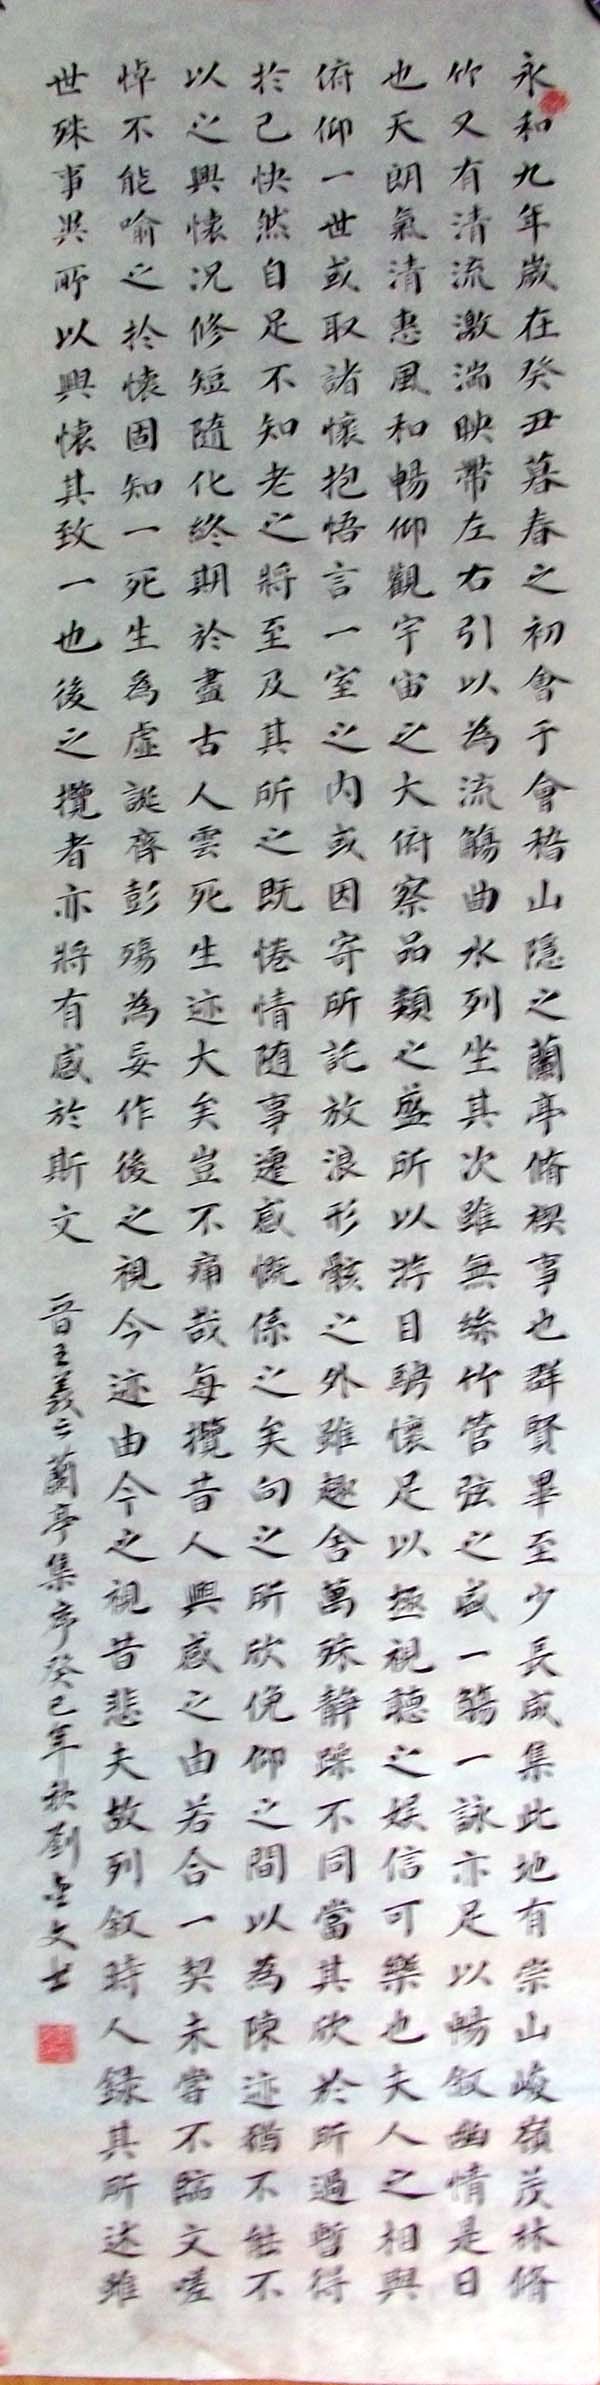 永和九年歲在癸丑暮春之初會于會稽山隱之蘭亭脩禊事也群賢畢至少長咸集此地有崇山峻嶺茂林脩
竹又有清流激湍映帶左右引以為流觴曲水列坐其次雖無絲竹管弦之盛一觴一詠亦足以暢叙幽情是日
也天朗氣清惠風和暢仰觀宇宙之大俯察品類之盛所以游目騁懷足以極視聽之娛信可樂也夫人之相與
俯仰一世或取諸懷抱悟言一室之內或因寄所託放浪形骸之外雖趣舍萬殊静躁不同當其欣於所過暫得
於己快然自足不知老之將至及其所之既惓情随事遷感慨係之矣向之所欣俛仰之間以為陳迹猶不能不
以之興懷況修短隨化終期於盡古人雲死生迹大矣豈不痛哉每攬昔人興感之由若合一契未嘗不臨文嗟
悼不能喻之於懷固知一死生為虛誕齊彭殤為妄作後之視今迹由今之視昔悲夫故列叙時人錄其所述雖
世殊事異所以興懷其致一也後之攬者亦將有感於斯文
晉王羲之蘭亭集序癸巳年秋劉金文書